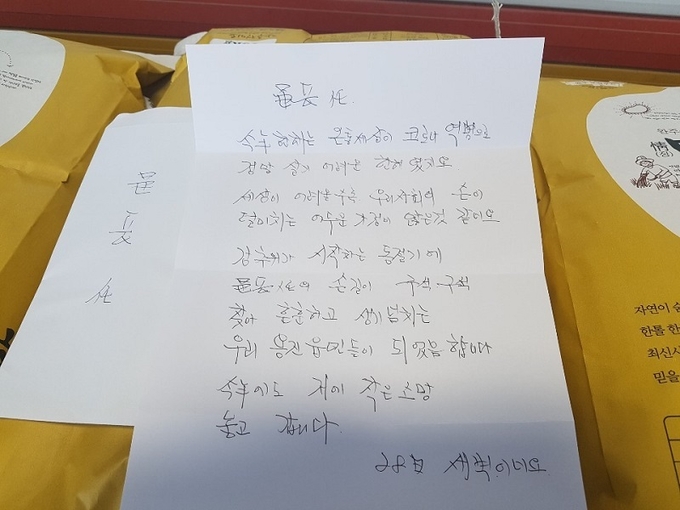 邑長任
今年 한해는 온 세상이 코로나 역병으로
정말 살기 어려운 한해 였지요
세상이 어려울수록 우리사회의 손이
덜미치는 어두운 가정이 많은것 같아요
강추위가 시작하는 동절기에
邑長任의 손길이 구석구석
찾아 훈훈하고 생기넘치는
우리 용진읍민들이 되었음 합니다
今年에도 저에 작은 소망
놓고 갑니다
28日 새벽이네요
邑
長
任
자연이
한톨 한
최신시
믿을